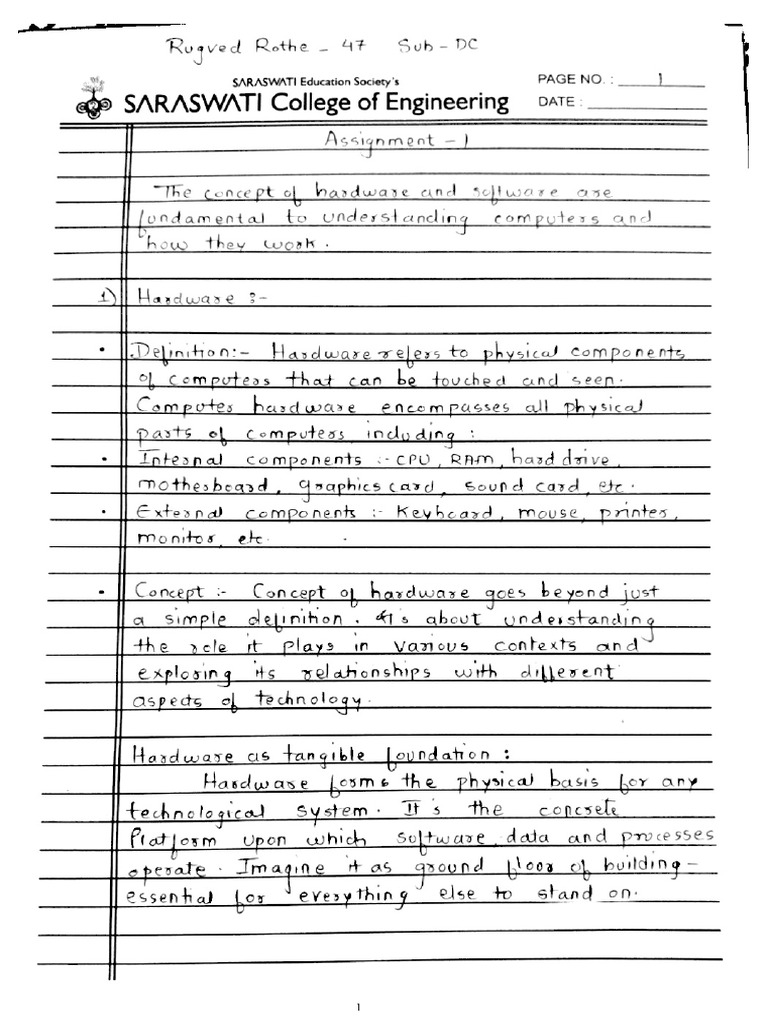 Rugved Rothe - 47 Sub - DC
SARASWATI Education Society's
SARASWATI College of Engineering
PAGE NO. : 1
DATE :
Assignment - 1
The concept of hardware and software are
fundamental to understanding computers and
how they work.
1) Hardware :-
• Definition:- Hardware refers to physical components
of computers that can be touched and seen.
Computer hardware encompasses all physical
parts of computers including :
• Internal components :- CPU, RAM, hard drive,
motherboard, graphics card, sound card, etc.
• External components :- Keyboard, mouse, printer,
monitor, etc.
• Concept :- Concept of hardware goes beyond just
a simple definition. It's about understanding
the role it plays in various contexts and
exploring its relationships with different
aspects of technology.
Hardware as tangible foundation :
Hardware forms the physical basis for any
technological system. It's the concrete
Platform upon which software, data and processes
operate. Imagine it as ground floor of building -
essential for everything else to stand on.
1